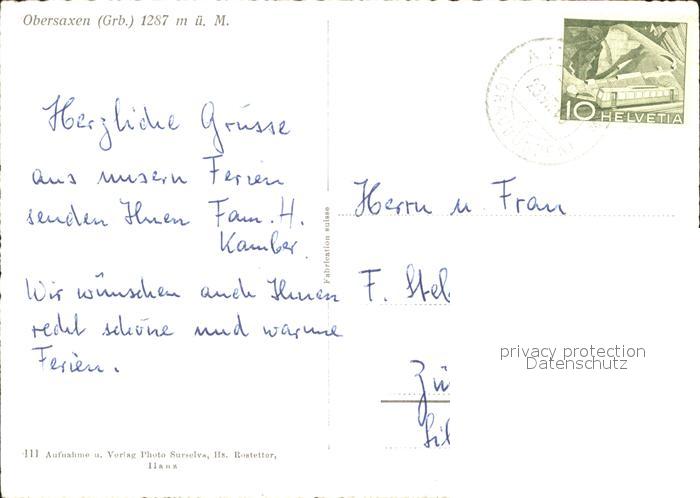 Obersaxen (Grb.) 1287 m ü. M.
10 HELVETIA
Herzliche Grüsse
aus unsern Ferien
senden Ihnen Fam. H.
Kamber.
Wir wünschen auch Ihnen
recht schöne und warme
Ferien.
Fabrication suisse
Herrn u. Frau
F. Stel
Zü
Sil
privacy protection
Datenschutz
411 Aufnahme u. Verlag Photo Surselva, Hs. Rostetter,
Ilanz